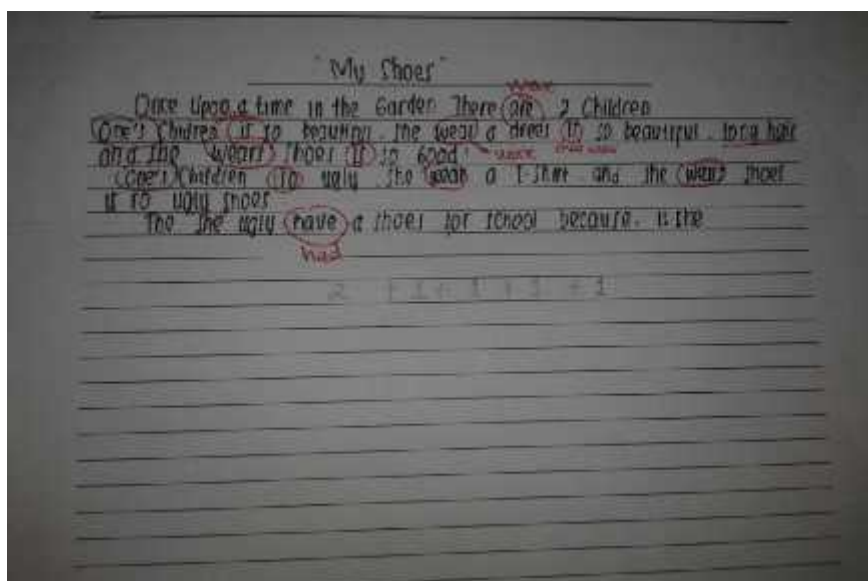 "My Shoes"
were
Once Upon a time in the Garden There are 2 Children
One's Children is so beautiful. She wear a dress is so beautiful. long hair
and she wears shoes is so Good wore
One's Children so ugly she wear a T-Shirt and she wears shoes
is so ugly shoes
The she ugly have a shoes for school because. is she
had
2 +1+1+1+1